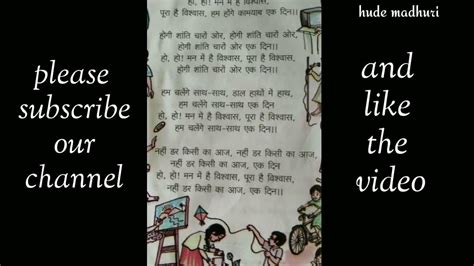 hude madhuri
please
subscribe
our
channel
हो, हो! मन में है विश्वास,
पूरा है विश्वास, हम होंगे कामयाब एक दिन।।
होगी शांति चारों ओर, होगी शांति चारों ओर,
होगी शांति चारों ओर एक दिन।
हो, हो! मन में है विश्वास, पूरा है विश्वास,
होगी शांति चारों ओर एक दिन।।
हम चलेंगे साथ-साथ, डाल हाथों में हाथ,
हम चलेंगे साथ-साथ एक दिन
हो, हो! मन में है विश्वास, पूरा है विश्वास,
हम चलेंगे साथ-साथ एक दिन।।
नहीं डर किसी का आज, नहीं डर किसी का आज,
नहीं डर किसी का आज, एक दिन
हो, हो! मन में है विश्वास, पूरा है विश्वास,
नहीं डर किसी का आज, एक दिन।।
and
like
the
video